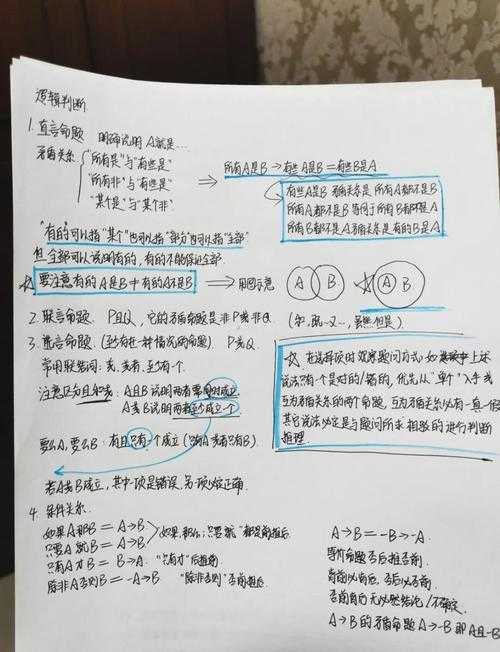 逻辑判断
1. 直言命题 明确说明 A就是…
矛盾关系
"所有是"与"有些是"
"所有非"与"有些是"
"某个是"与"某个非"
⇒ 所有A是B → 有些A是B = 有些B是A
有些A是B 矛盾关系是 所有A都不是B
所有A都不是B 等同于 所有B都不是A
所有B都不是A 矛盾关系是 有的B是A
"有的"可以指"某个"也可以指"部分"也可以指"全部"
但全部可以说明有的，有的不能保证全部.
☆ 要注意有的A是B中有的A不是B ⇒ 用图示意 A B ☆ A B
2. 联言命题. P且Q, 它的矛盾命题是非P或非Q. (和，既…又…，虽然但是)
3. 选言命题 (至少有在一种情况的命题) P或Q.
常用联结词：或，或者，至少有一个.
注意区分且和或：A且B说明两者要同时成立
A或B说明两者至少成立一个
要么A，要么B：有且只有一个成立（只有A或者只有B）.
若A或B成立，其中一项是错误，另一项必定正确.
☆ 在选择项时 观察题问方式，如 上述
说法只有一个是对的/错的，优先从"单个"入手或
互为矛盾关系的两个命题，互为矛盾关系必有一真一假
其它说法必定是与题问所求相驳的进行判断
推理.
4. 条件关系.
如果A那B = A→B.
只要A就B = A→B.
"如果，那么；只要，就"都是前推后.
只有A才B = B→A. "只有才"后推前.
除非A否则B = -A→B "除非否则"否前推后.
A→B = -B→-A.
等价命题否后推否前.
肯前必肯后，否后必否前.
否前肯后无必然结论/不确定.
A→B的矛盾命题A→-B 即A且-B